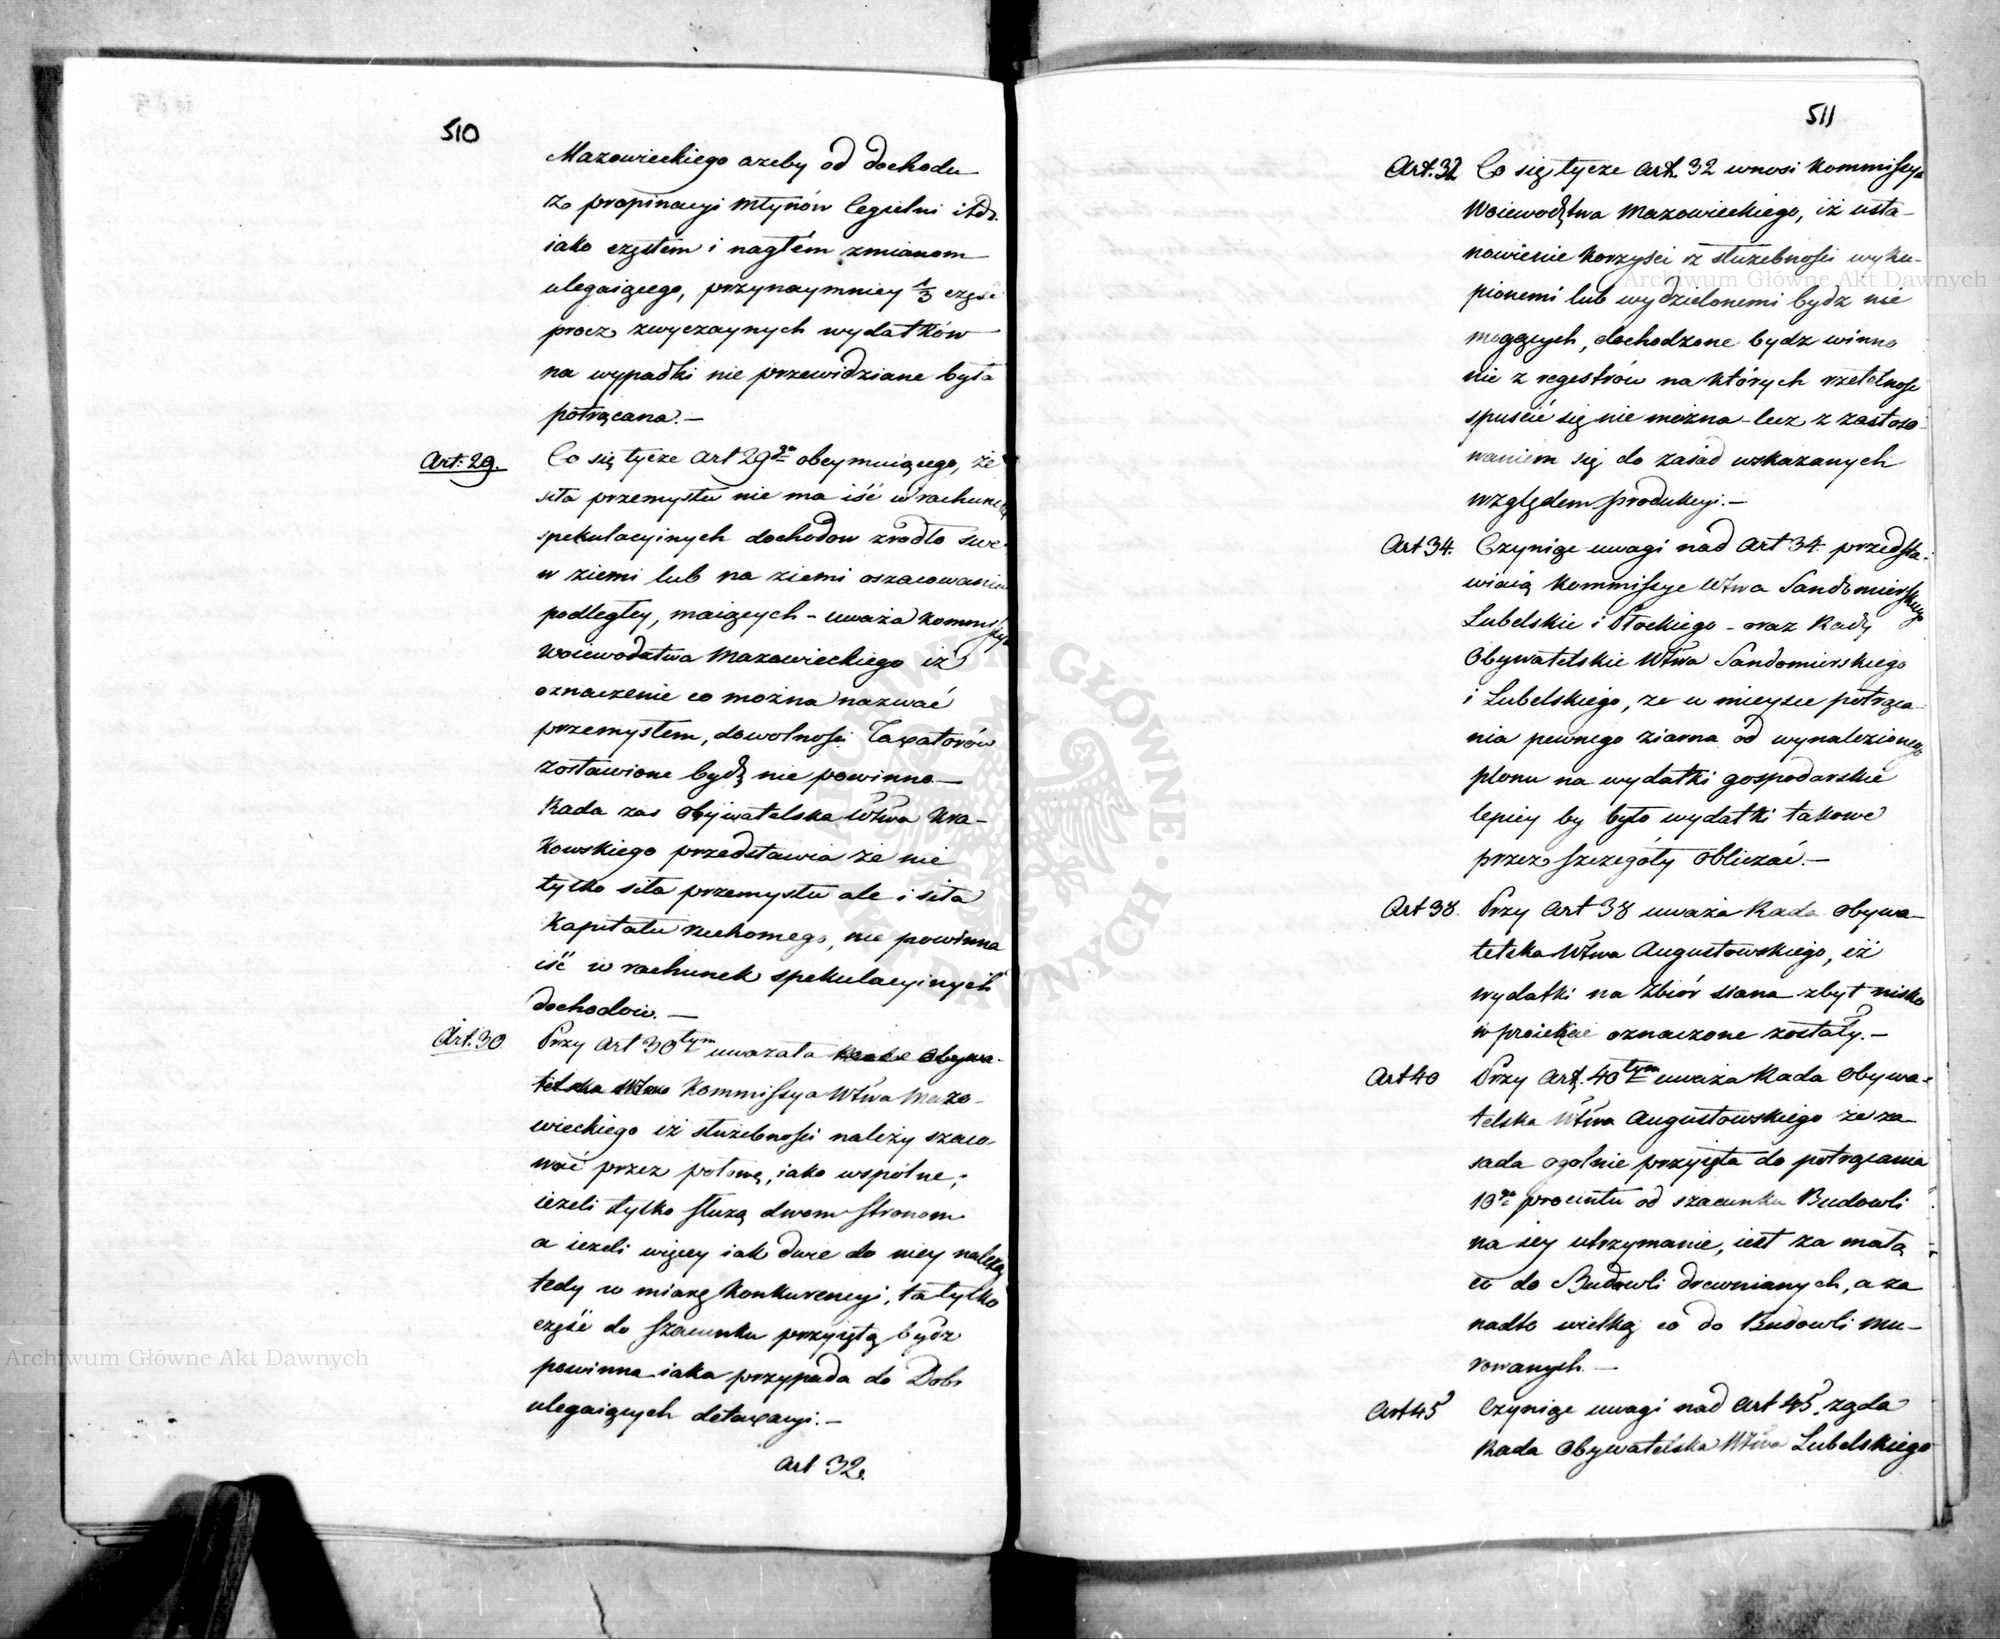 510
Mazowieckiego azeby od dochodu
z propinacyi Młynów Cegielni itd.
iako częstem i nagłém zmianom
ulegaiącego, przynaymniey 1/3 część
procz zwyczaynych wydatków
na wypadki nie przewidziane była
potrącana. —
Art: 29. Co się tycze Art 29go obeymuiącego, że
siła przemysłu nie ma iść w rachunek
spekulacyinych dochodow zrodło swe
w ziemi lub na ziemi oszacowaniu
podległey, maiących – uważa Kommissya
Woiewodztwa Mazowieckiego iż
oznaczenie co można nazwać
przemysłem, dowolności Taxatorów
zostawione bydź nie powinno —
Rada zas Obywatelska Wtwa Kra-
kowskiego przedstawia że nie
tylko siła przemysłu ale i siła
Kapitału ruchomego, nie powinna
iść w rachunek spekulacyinych
dochodow. —
Art. 30 Przy Art 30tym uwazała Rada Obywa-
telska Wtwa Kommissya Wtwa Mazo-
wieckiego iż służebności należy szaco-
wać przez połowę, iako wspólne;
ieżeli tylko służą dwom stronom
a ieżeli więcey iak dwie do niey należą
tedy w miarę Konkurencyi, ta tylko
część do szacunku przyiętą bydz
powinna iaka przypada do Dobr
ulegaiących detaxacyi. —
Art 32.
511
Art. 32 Co się tycze Art. 32 wnosi Kommissya
Woiewodztwa Mazowieckiego, iż usta-
nowienie korzyści z służebności wyku-
pionemi lub wydzielonemi bydz nie
mogących, dochodzone bydz winno
nie z regestrów na których rzetelność
spuście się nie można – lecz z zastoso-
waniem się do zasad wskazanych
względem produkcyi. —
Art 34. Czyniąc uwagi nad Art 34 przedsta-
wiaią Kommissye Wtwa Sandomierskiego
Lubelskie i Płockiego – oraz Rady
Obywatelskie Wtwa Sandomirskiego
i Lubelskiego, ze w mieysce potrąca-
nia pewnego ziarna od wynalezionego
plonu na wydatki gospodarskie
lepiey by było wydatki takowe
przez szczegóły obliczać. —
Art 38. Przy Art 38 uważa Rada Obywa-
telska Wtwa Augustowskiego, iż
wydatki na Zbiór siana zbyt nisko
w proiekcie oznaczone zostały. —
Art 40 Przy Art. 40tym uważa Rada Obywa-
telska Wtwa Augustowskiego że za-
sada ogolnie przyięta do potrącania
10go procentu od szacunku Budowli
na iey utrzymanie, iest za małą
co do Budowli drewnianych, a za
nadto wielką co do Budowli mu-
rowanych. —
Art 45 Czyniąc uwagi nad Art 45. zgda
Rada Obywatelska Wtwa Lubelskiego
Archiwum Główne Akt Dawnych
Archiwum Główne Akt Dawnych